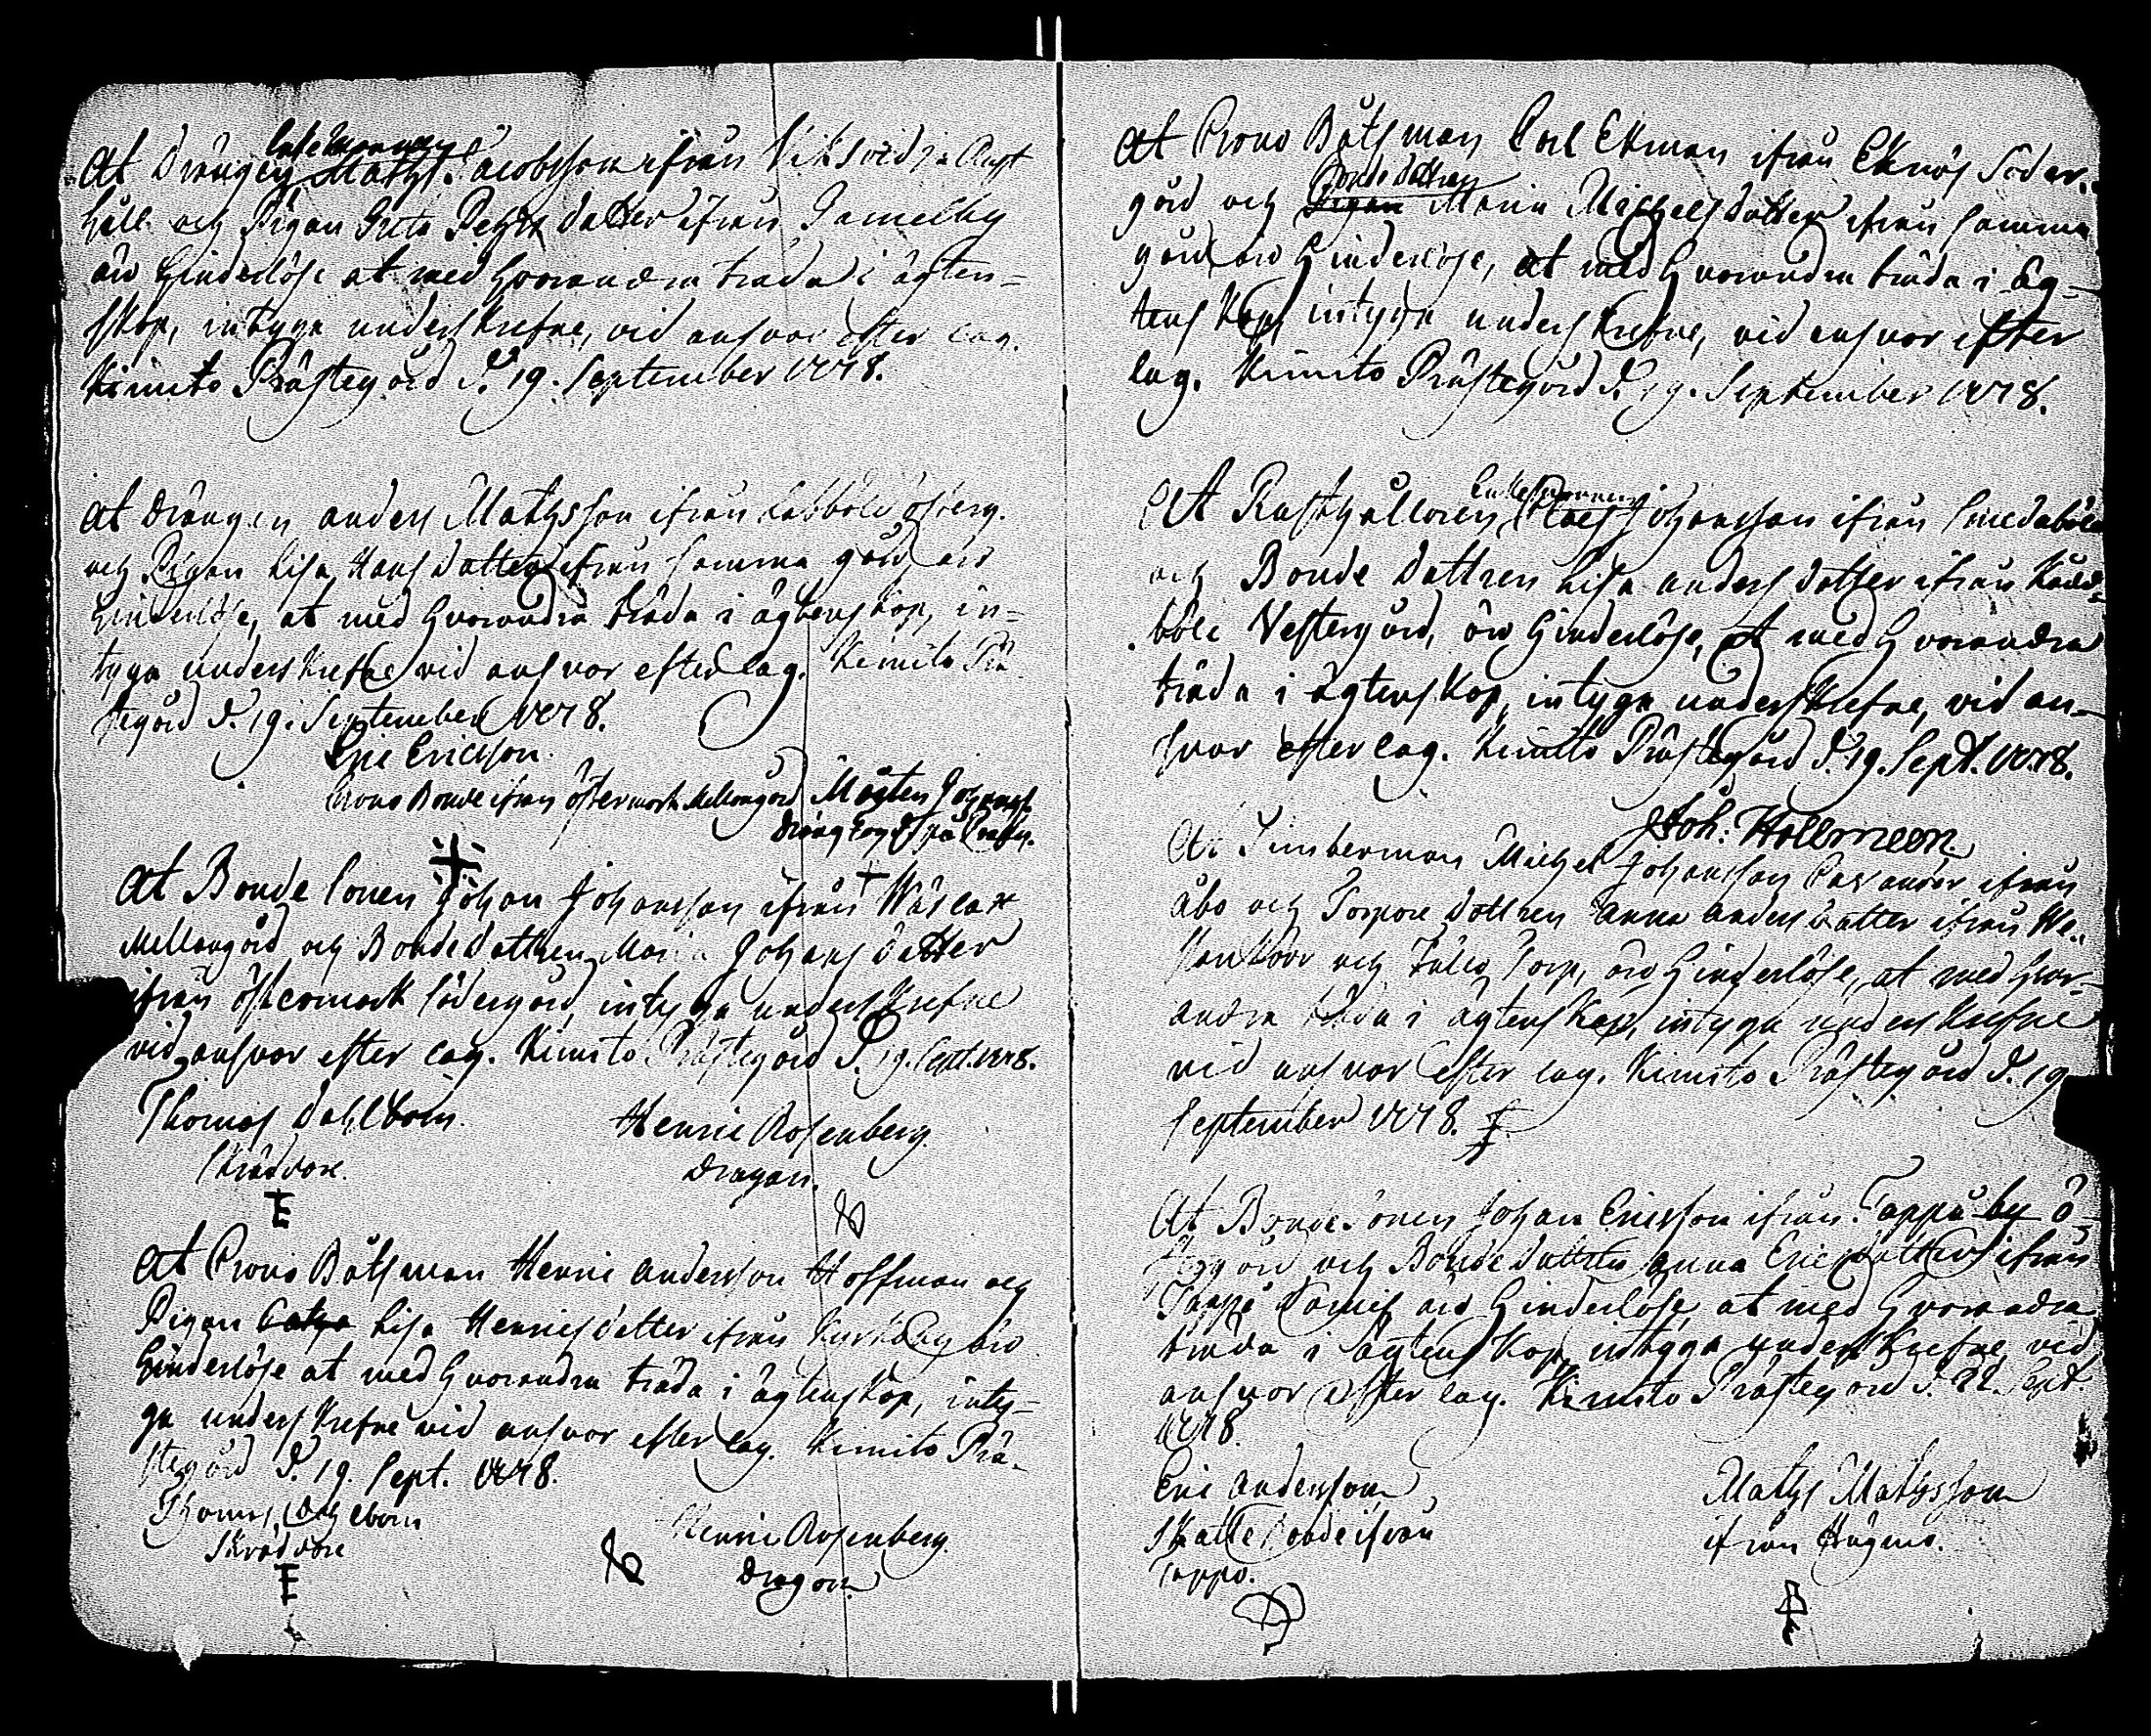 Enkemannen
At Drängen Mathz Jacobsson ifrån Viksvidja Rust
håll och Pigan Greta Pehrs datter ifrån Gamelby
äro hinderlöse at med hvarandra träda i ägten-
skap, intyga underskrefne, vid answar efter lag.
Kimito Prästegård d. 19. September 1778.
At Drängen Anders Mathsson ifrån
och Pigan Lisa Hans datter ifrån samma gård äro
hinderlöse, at med hvarandra träda i ägtenskap, in-
tyga underskrefne vid answar efter lag. Kimito Prä-
stegård d. 19. September 1778.
Eric Ericsson.
Crono Bonde ifrån Östermark Mellangård Mårten Johanss.
At Bonde Sonen Johan Johansson ifrån Wäslax
Mellangård och Bonde dattren Maria Johans datter
ifrån Östermark Södergård, intyga underskrefne
vid answar efter lag. Kimito Prästegård d. 19. Sept. 1778.
Thomas Dahlbom Henric Rosenberg.
Skräddare. Dragon.
At Crono Båtsman Henric Andersson Hoffman och
Pigan Catha Lisa Henricsdatter ifrån äro
hinderlöse at med hvarandra träda i ägtenskap, inty-
ga underskrefne vid answar efter lag. Kimito Prä-
stegård d. 19. Sept. 1778.
Thomas Dahlbom Henric Rosenberg.
Skräddare Dragon.
At Crono Båtsman Carl Ekman ifrån Eknäs Söder-
Bonde dattren
gård och Pigan Maria Michelsdatter ifrån samma
gård äro hinderlöse, at med hvarandra träda i äg-
tenskap, intyga underskrefne, vid answar efter
lag. Kimito Prästegård d. 19. September 1778.
Enkemannen
At Rusthållaren Claes Johansson ifrån Smedaböle
och Bonde dattren Lisa Anders datter ifrån
böle Vestergård, äro hinderlöse, at med hvarandra
träda i ägtenskap, intyga underskrefne, vid an-
svar efter lag. Kimito Prästegård d. 19. Sept. 1778.
Joh:
At Timberman Michel Johansson ifrån
Åbo och Torpare dottren Anna Anders datter ifrån
och Torp, äro hinderlöse, at med hvar-
andra träda i ägtenskap, intyga underskrefne
vid answar efter lag. Kimito Prästegård d. 19
September 1778.
At Bonde Sonen Johan Ericsson ifrån Tappo by Ö-
stergård och Bonde dattren Anna Ericsdatter ifrån
Tappo äro hinderlöse, at med hvarandra
träda i ägtenskap, intyga underskrefne vid
answar efter lag. Kimito Prästegård d. 22. Sept.
1778.
Eric Andersson Maths Mathsson
Skatte Bonde ifrån ifrån
Tappo.